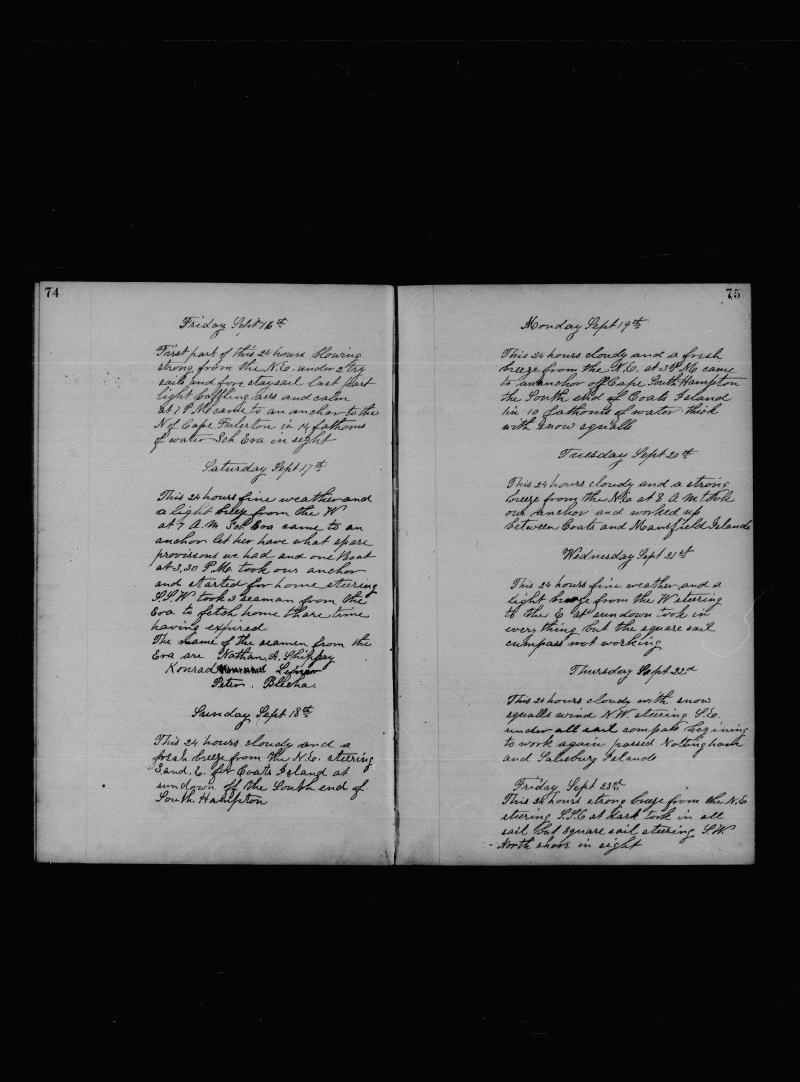 74
Friday Sept 16th
First part of this 24 hours blowing
strong from the N.E. under 2 try
sails and fore staysail last part
light baffling airs and calm
at 7 P.M. came to an anchor to the
N of Cape Fulerton in 14 fathoms
of water Sch Era in sight
Saturday Sept 17th
This 24 hours fine weather and
a light breze from the W
at 7 A.M. Sch Era came to an
anchor let her have what spare
provisons we had and one Boat
at 3,30 P.M. took our anchor
and started for home steering
S.S.W took 3 seaman from the
Era to fetch home thare time
having expired
The name of the seamen from the
Era are Nathan, A. Shippay
Konrad
Peter. Blleha.
Sunday Sept 18th
This 24 hours cloudy and a
fresh breeze from the N.E. steering
S and. E. for Coats Island at
sundown off the South end of
South. Hampton
75
Monday Sept 19th
This 24 hours cloudy and a fresh
breeze from the N.E. at 3 P.M. came
to an anchor off Cape South Hampton
the South end of Coats Island
in 10 fathoms of water thick
with snow squalls
Tuesday Sept 20th
This 24 hours cloudy and a strong
breeze from the N.E. at 8 A.M. took
our anchor and worked up
between Coats and Mansfield Islands
Wednesday Sept 21st
This 24 hours fine weather and a
light breze from the W steering
to the E at sundown took in
every thing but the square sail
cumpass not working
Thursday Sept 22d
This 24 hours cloudy with snow
squalls wind N.W. steering S.E.
under all sail compass begining
to work again passed Nottingham
and Salisburg Islands
Friday Sept 23d
This 24 hours strong breze from the N.E
steering S.S.E at dark took in all
sail but square sail steering S.W
North shore in sight